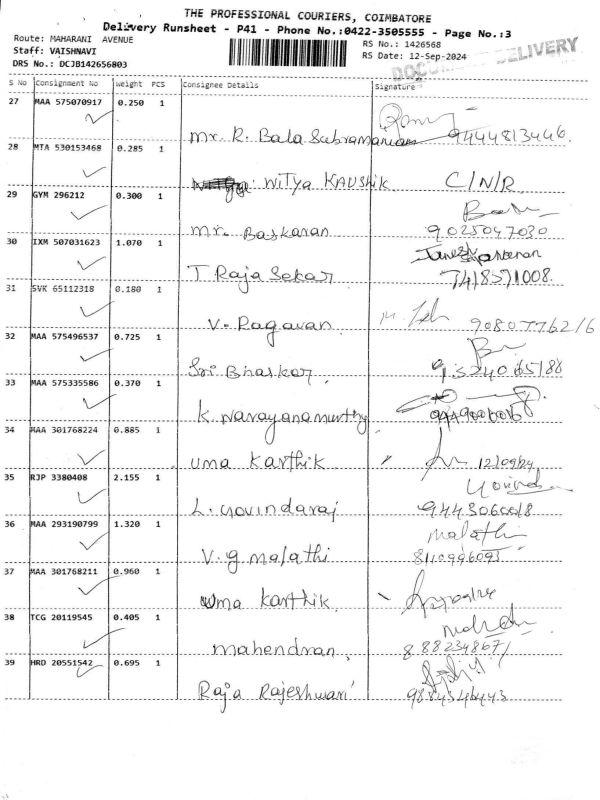 THE PROFESSIONAL COURIERS, COIMBATORE
Delivery Runsheet - P41 - Phone No.:0422-3505555 - Page No.:3
Route: MAHARANI AVENUE
RS No.: 1426568
Staff: VAISHNAVI
RS Date: 12-Sep-2024
DRS No.: DCJB142656803
DELIVERY
S No Consignment No Weight PCS Consignee Details Signature
27 MAA 575070917 0.250 1
Mr. R. Bala Subramaniam 9444813446
28 MTA 530153468 0.285 1
Nitya Kaushik C/N/R
29 GYM 296212 0.300 1
Mr. Baskaran 9025047030
30 IXM 507031623 1.070 1
T Raja Sekar 7418571008
31 SVK 65112318 0.180 1
V. Ragavan
32 MAA 575496537 0.725 1
Sri Bhaskar
33 MAA 575335586 0.370 1
K. Narayanamurthy
34 MAA 301768224 0.885 1
Uma Karthik 12/09/24
35 RJP 3380408 2.155 1
L. Govindaraj
36 MAA 293190799 1.320 1
Malathi
V. G Malathi 8110996093
37 MAA 301768211 0.960 1
Uma Karthik
38 TCG 20119545 0.405 1
Mahendran,
39 HRD 20551542 0.695 1
Raja Rajeshwari